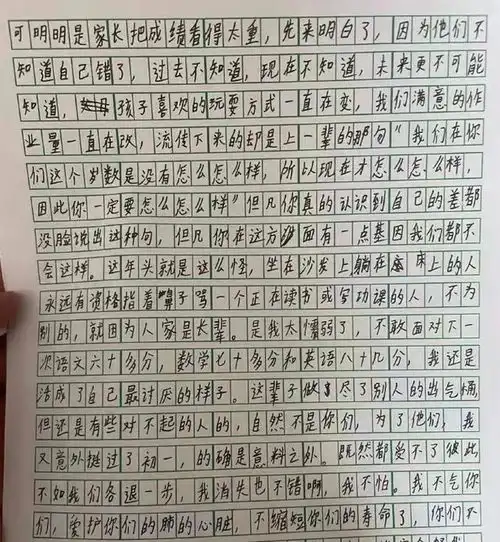 可明明是家长把成绩看得太重，先来明白了，因为他们不
知道自己错了，过去不知道，现在不知道，未来更不可能
知道，孩子喜欢的玩耍方式一直在变，我们满意的作
业量一直在改，流传下来的却是上一辈的那句“我们在你
们这个岁数是没有怎么怎么样，所以现在才怎么怎么样，
因此你一定要怎么怎么样”但凡你真的认识到自己的差都
没脸说出这种句，但凡你在这方面有一点基因我们都不
会这样。这年头就是这么怪，坐在沙发上躺在床上的人
永远有资格指着鼻子骂一个正在读书或写功课的人，不为
别的，就因为人家是长辈。是我太懦弱了，不敢面对下一
次语文六十多分，数学七十多分和英语八十几分，我还是
活成了自己最讨厌的样子。这辈子做尽了别人的出气桶，
但还是有些对不起的人的，自然不是你们，为了他们，我
又意外挺过了初一，的确是意料之外。既然都受不了彼此，
不如我们各退一步，我消失也不错啊，我不怕。我不气你
们，爱护你们的肺的心脏，不缩短你们的寿命了，你们不